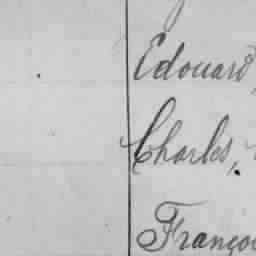 Edouard,
Charles,
Françoi